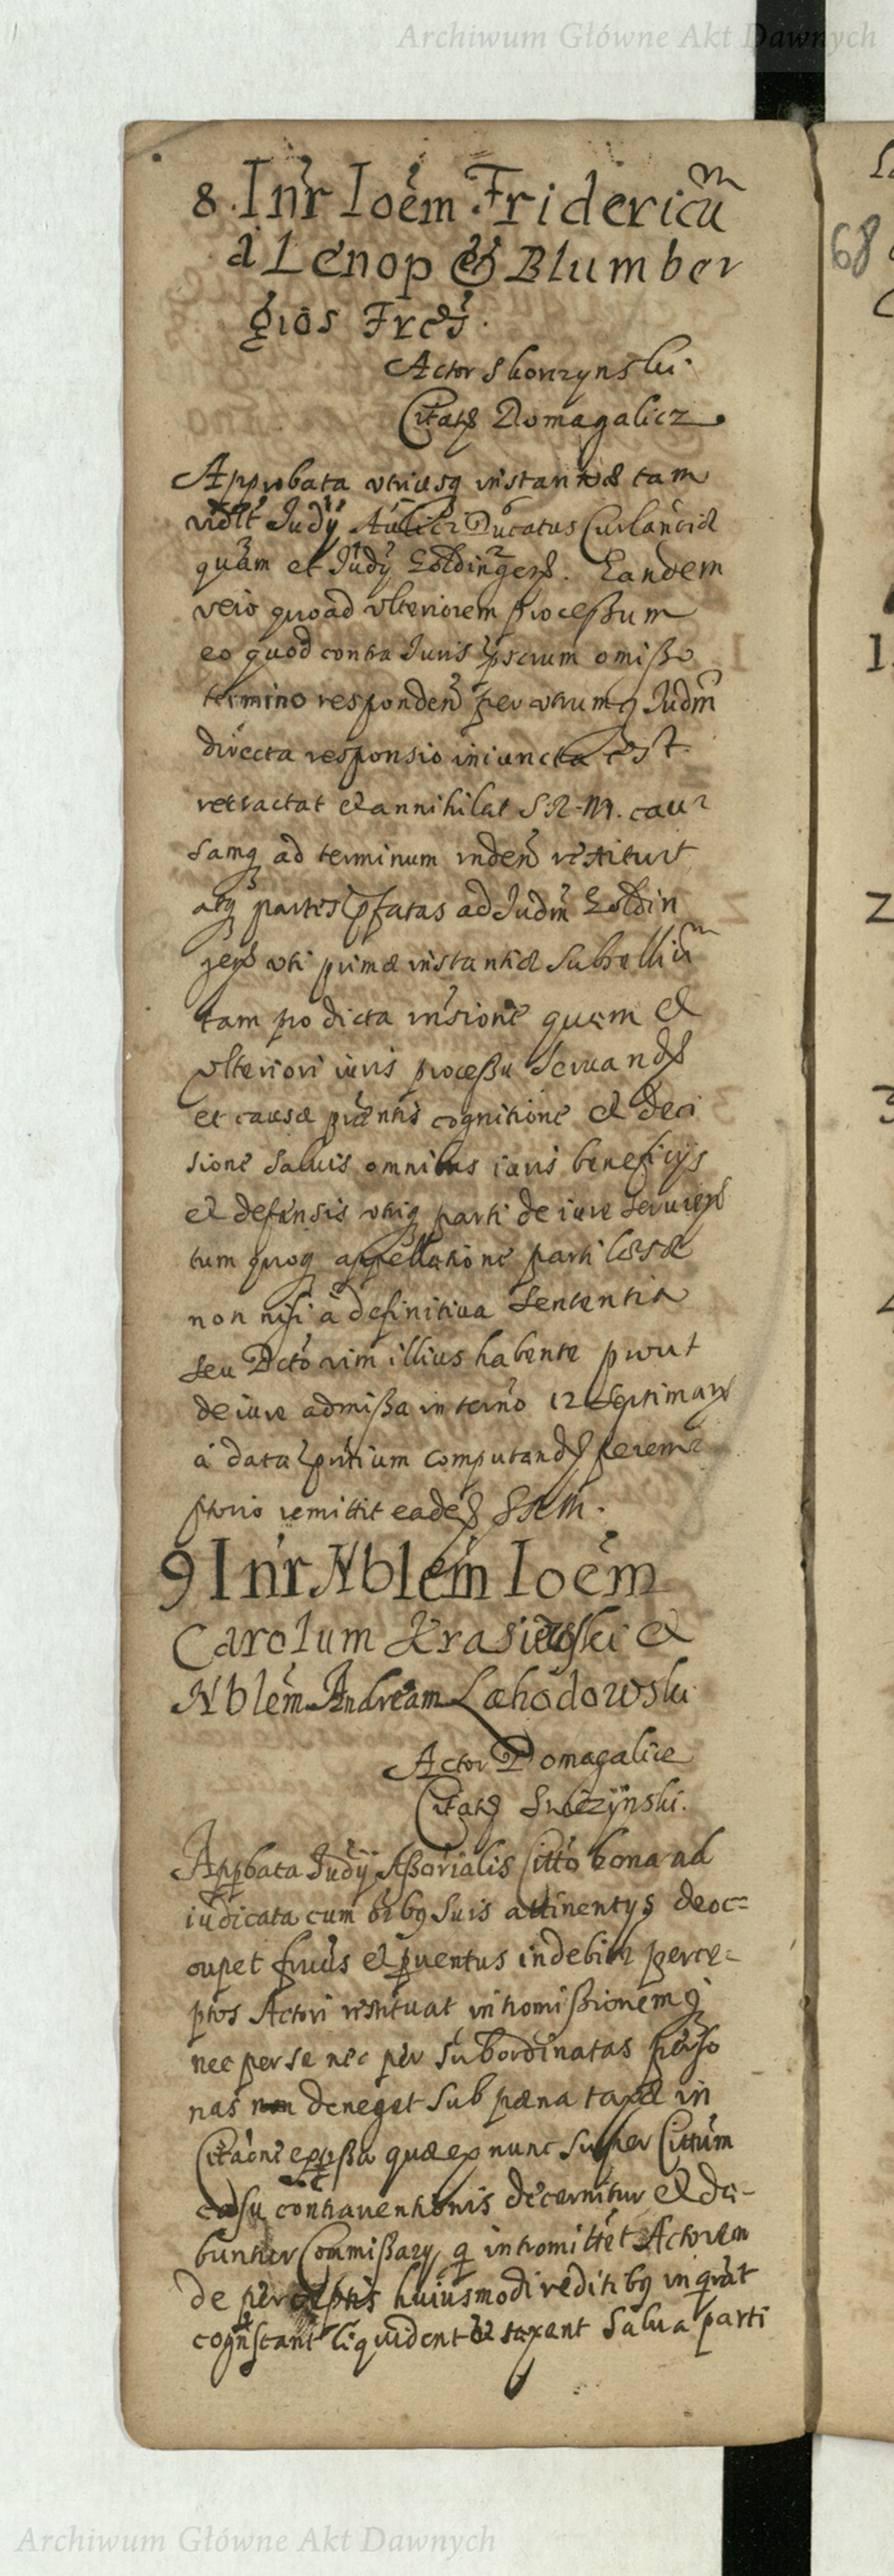 Archiwum Główne Akt Dawnych
8. Inr Ioem Fridericum
à Lenop & Blumber
gios Fres.
Actor Skorzynski.
Citatus Domagalicz.
Approbata utriusq instantiæ tam
videlt Judij Aulici Ducatus Curlandiæ
quam et Judij Goldingens. Eandem
vero quoad ulteriorem processum
eo quod contra Juris pscrum omisso
termino responden per utrumq Judm
directa responsio iniuncta est
retractat et annihilat S. R. M. cau
samq ad terminum inden restituit
atq partes pfatas ad Judm Goldin
gens uti primæ instantiæ Subsellium
tam pro dicta insione quam et
ulteriori iuris processu servand
et causæ præntis cognitione et deci
sione salvis omnibus iuris beneficijs
et defensis utriq parti de iure servien
tum quoq appellatione parti læsæ
non nisi a definitiva Sententia
seu Dcto vim illius habente prout
de iure admissa in termo 12 Septimar
a data pntium computand perem
ptorio remittit eade
9 Inr Nblem Ioem
Carolum Krasi et
Nblem Andream Lahodowski
Actor Domagalic
Citatus
Appbata Judij Assorialis Citto bona ad
iudicata cum oibq suis attinentijs deoc=
cupet fruus et pventus indebite perce=
ptos Actori restituat intromissionemq
nec per se nec per subordinatas perso
nas deneget sub pæna taxæ in
Citaone expssa quæ ex nunc super Cittum
casu contraventionis decernitur et da-
buntur Commissary q intromittet Actorem
de perceptis huiusmodi reditibq inqrat
cognscant liquident et taxent Salva parti
68
1.
2
3
Archiwum Główne Akt Dawnych